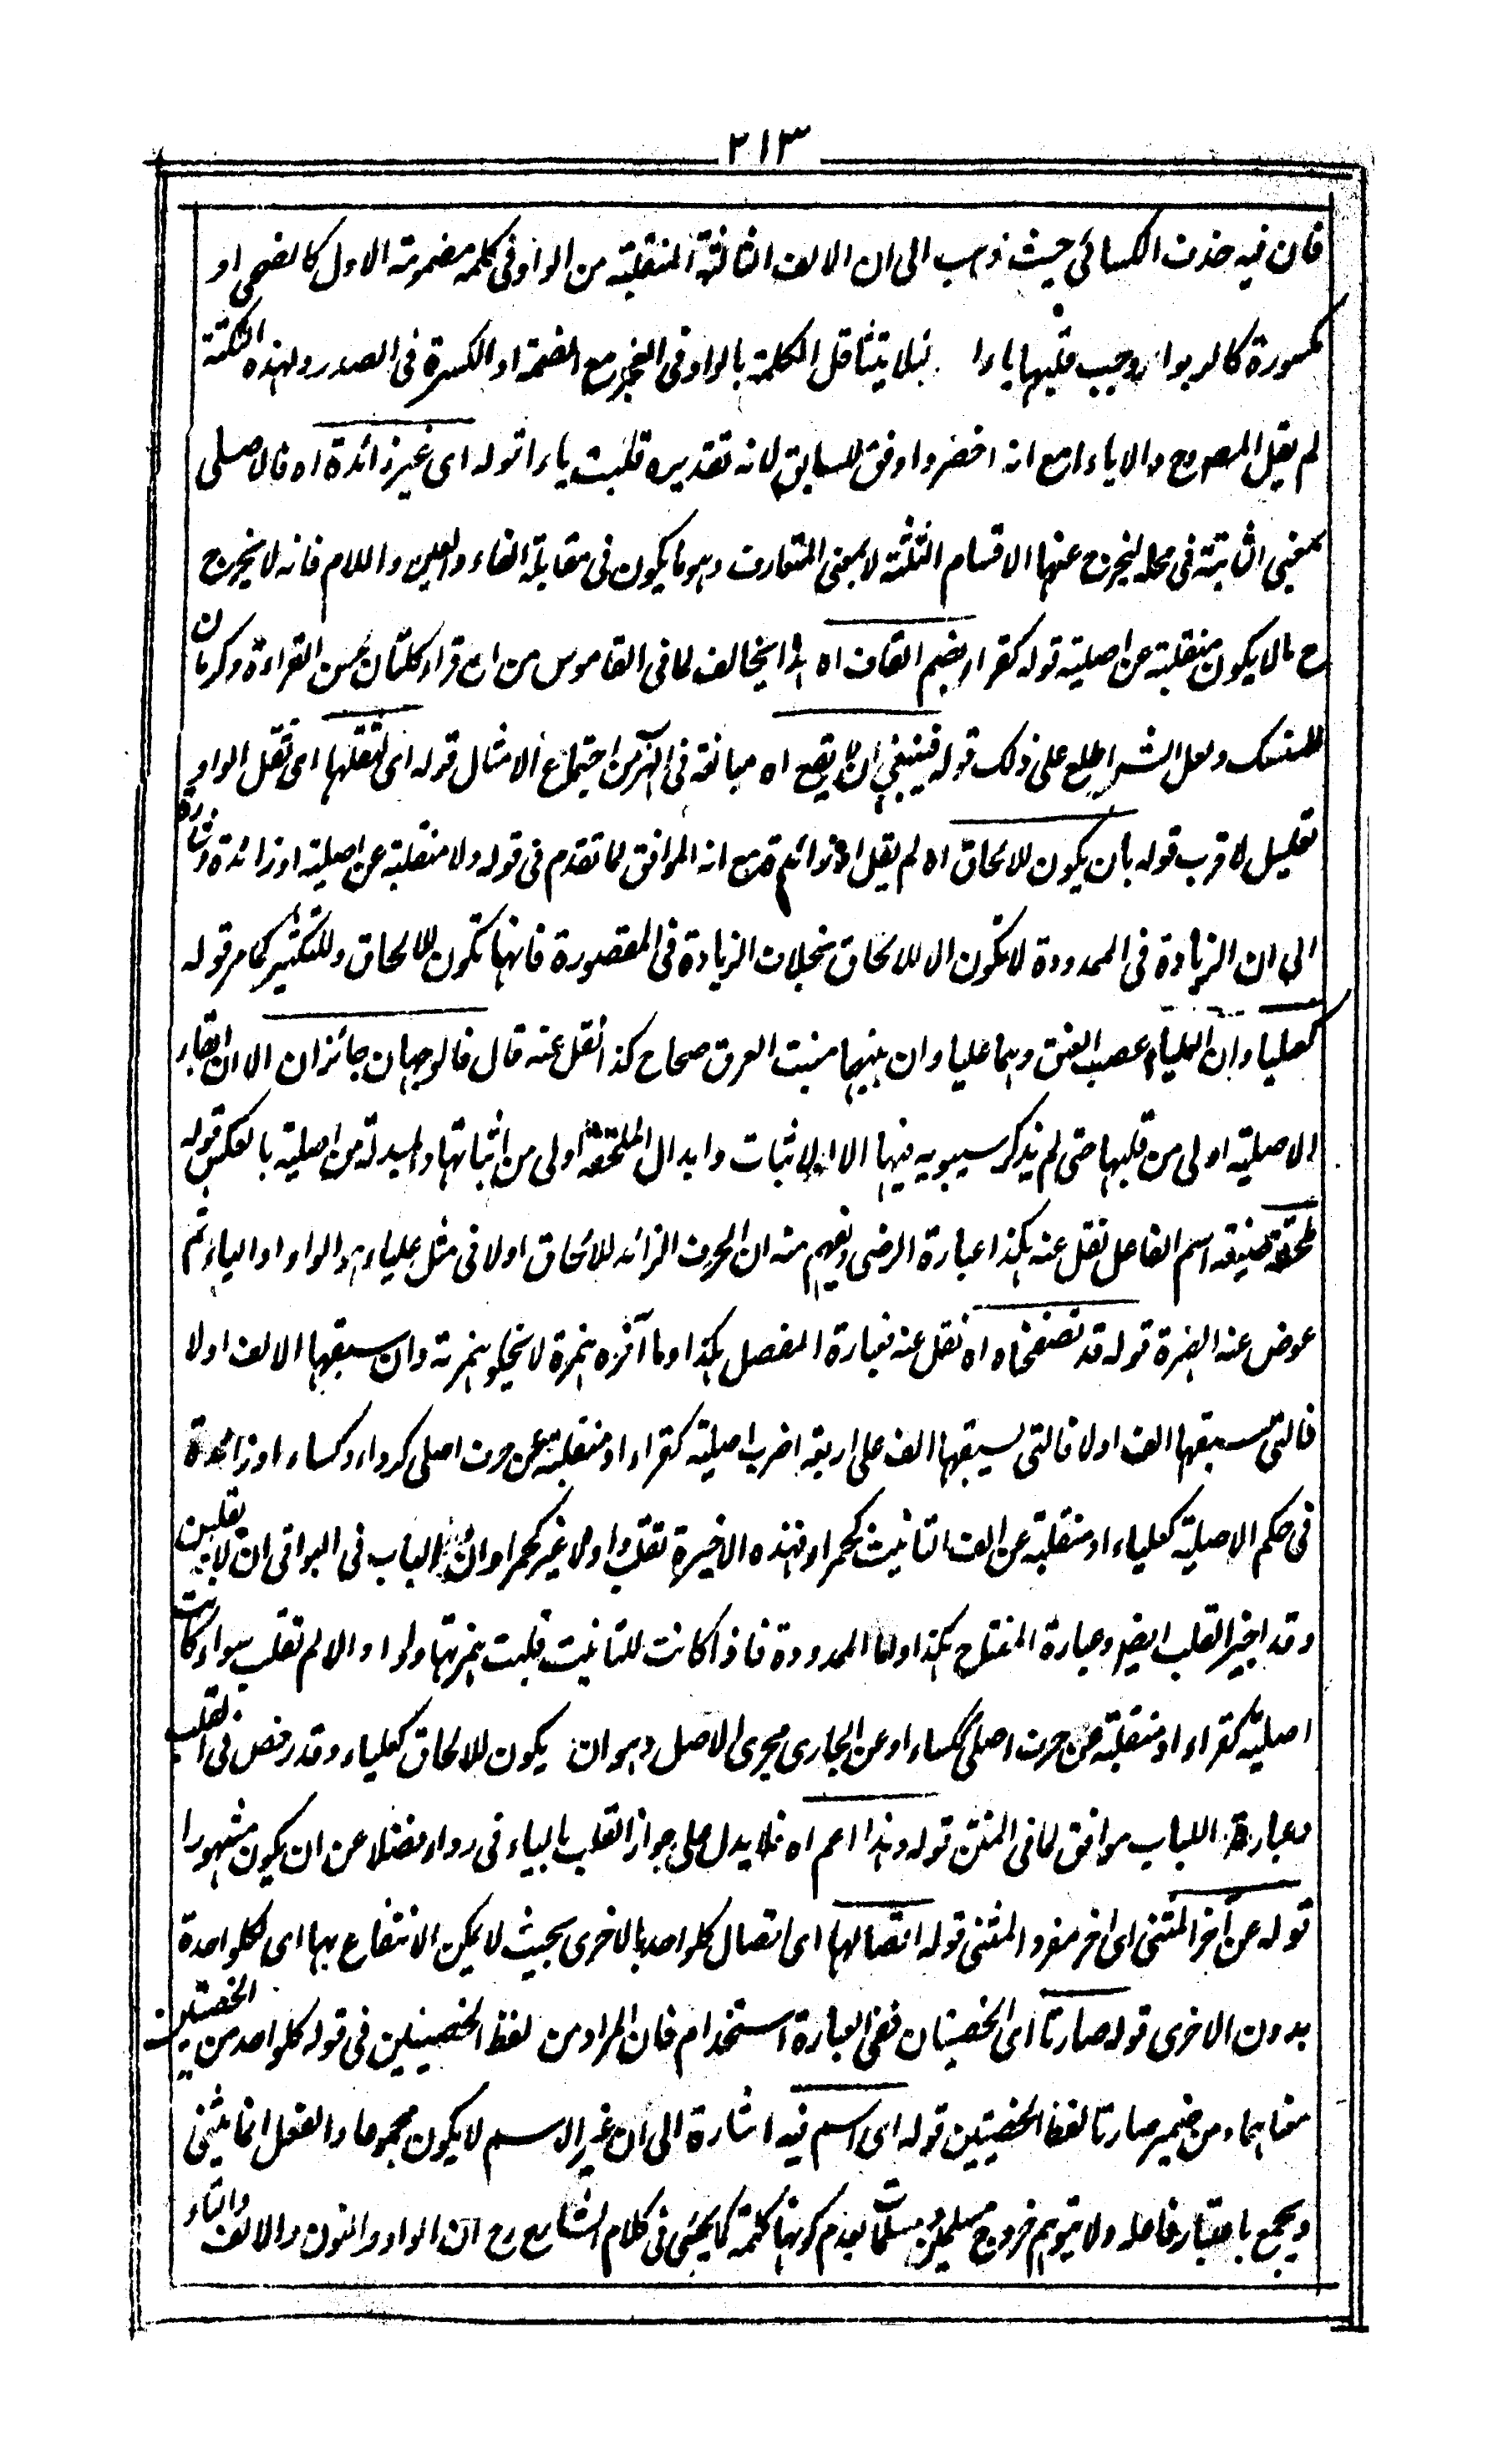 ٢١٣
فان فيه خلاف الكسائي حيث ذهب الى ان الالف الثالثة المنقلبة من الواو فى كلمة مضمومة الاول كالضحى او
مكسورة كالربوا وجب قلبها ياءا لئلا يتثاقل الكلمة بالواو فى العجز مع الضمة او الكسرة فى الصدر ولهذه النكتة
لم يقل المصرح والا ياءا مع انه اخضر واوفق للسابق لانه تقديره قلبت ياءا قوله اى غير زائدة اه فالاصلى
بمعنى الثابتة فى محله ليخرج عنها الاقسام الثلثة لا بمعنى المتعارف وهو ما يكون فى مقابلة الفاء والعين واللام فانه لا يخرج
ح ما لا يكون منقلبة عن اصلية قوله كقراء بضم القاف اه هذا يخالف لما فى القاموس من ان قراء ككتان لحسن القراءة وكرمان
للمتنسك ولعل الشر اطلع على ذلك قوله فينبغي ان لا يقع اه مبالغة فى التحرز من اجتماع الامثال قوله اى لثقلها اى ثقل الواو
تعليل لاقرب قوله بان يكون للالحاق اه لم يقل او زائدة مع انه الموافق لما تقدم فى قوله ولا منقلبة عن اصلية او زائدة اشارة
الى ان الزيادة فى الممدودة لا تكون الا للالحاق بخلاف الزيادة فى المقصورة فانها تكون للالحاق وللتكثير كما مر قوله
كعلياوان العلباء عصب العنق وهما علباوان بينهما منبت العرق صحاح كذا نقل عنه قال فالوجهان جائزان الا ان ابقاء
الاصلية اولى من قلبها حتى لم يذكر سيبويه فيها الا الاثبات وابدال الملحقة اولى من اثباتها والمبدلة من اصلية بالعكس قوله
ملحقة بصيغة اسم الفاعل نقل عنه هكذا عبارة الرضى ويفهم منه ان الحرف الزائد للالحاق اولا فى مثل علباء هو الواو او الياء ثم
عوض عنه الهمزة قوله قد تصفحناه اه نقل عنه عبارة المفصل هكذا وما آخره همزة لا يخلو همزته وان سبقها الالف اولا
فالتى سبقها الف اولا فالتى يسبقها الف على اربعة اضرب اصلية كقراء او منقلبة عن حرف اصلى كرداء وكساء او زائدة
فى حكم الاصلية كعلباء او منقلبة عن الف التانيث كحمراء فهذه الاخيرة تقلب واوا لا غير كحمراوان والباب فى البواقى ان لا يقلبن
وقد اجيز القلب ايضا وعبارة المفتاح هكذا واما الممدودة فاذا كانت للتانيث قلبت همزتها واوا والا لم تقلب سواء كانت
اصلية كقراء او منقلبة عن حرف اصلى ككساء او عن الجارى مجرى الاصل وهو ان يكون للالحاق كعلباء وقد رخص فى القلب
وعبارة اللباب موافق لما فى المتن قوله وهذا اعم اه فلا يدل على جواز القلب بالياء فى رداء فضلا عن ان يكون مشهورا
قوله عن آخر المثنى اى آخر مفرد المثنى قوله اتصالها اى اتصال كلواحد بالاخرى بحيث لا يمكن الانتفاع بها اى لكلواحدة
بدون الاخرى قوله صارتا اى الخصيتان ففى العبارة استخدام فان المراد من لفظ الخصيتين فى قوله كلواحد من الخصيتين
معناهما ومن ضمير صارتا لفظ الخصيتين قوله اى اسم فيه اشارة الى ان غير الاسم لا يكون مجموعا والفعل انما يثنى
ويجمع باعتبار فاعله ولا يتوهم خروج مسلمون مسلمات بعدم كونها كلمة كما يجئ فى كلام الشارح رح ان الواو والنون والالف والتاء